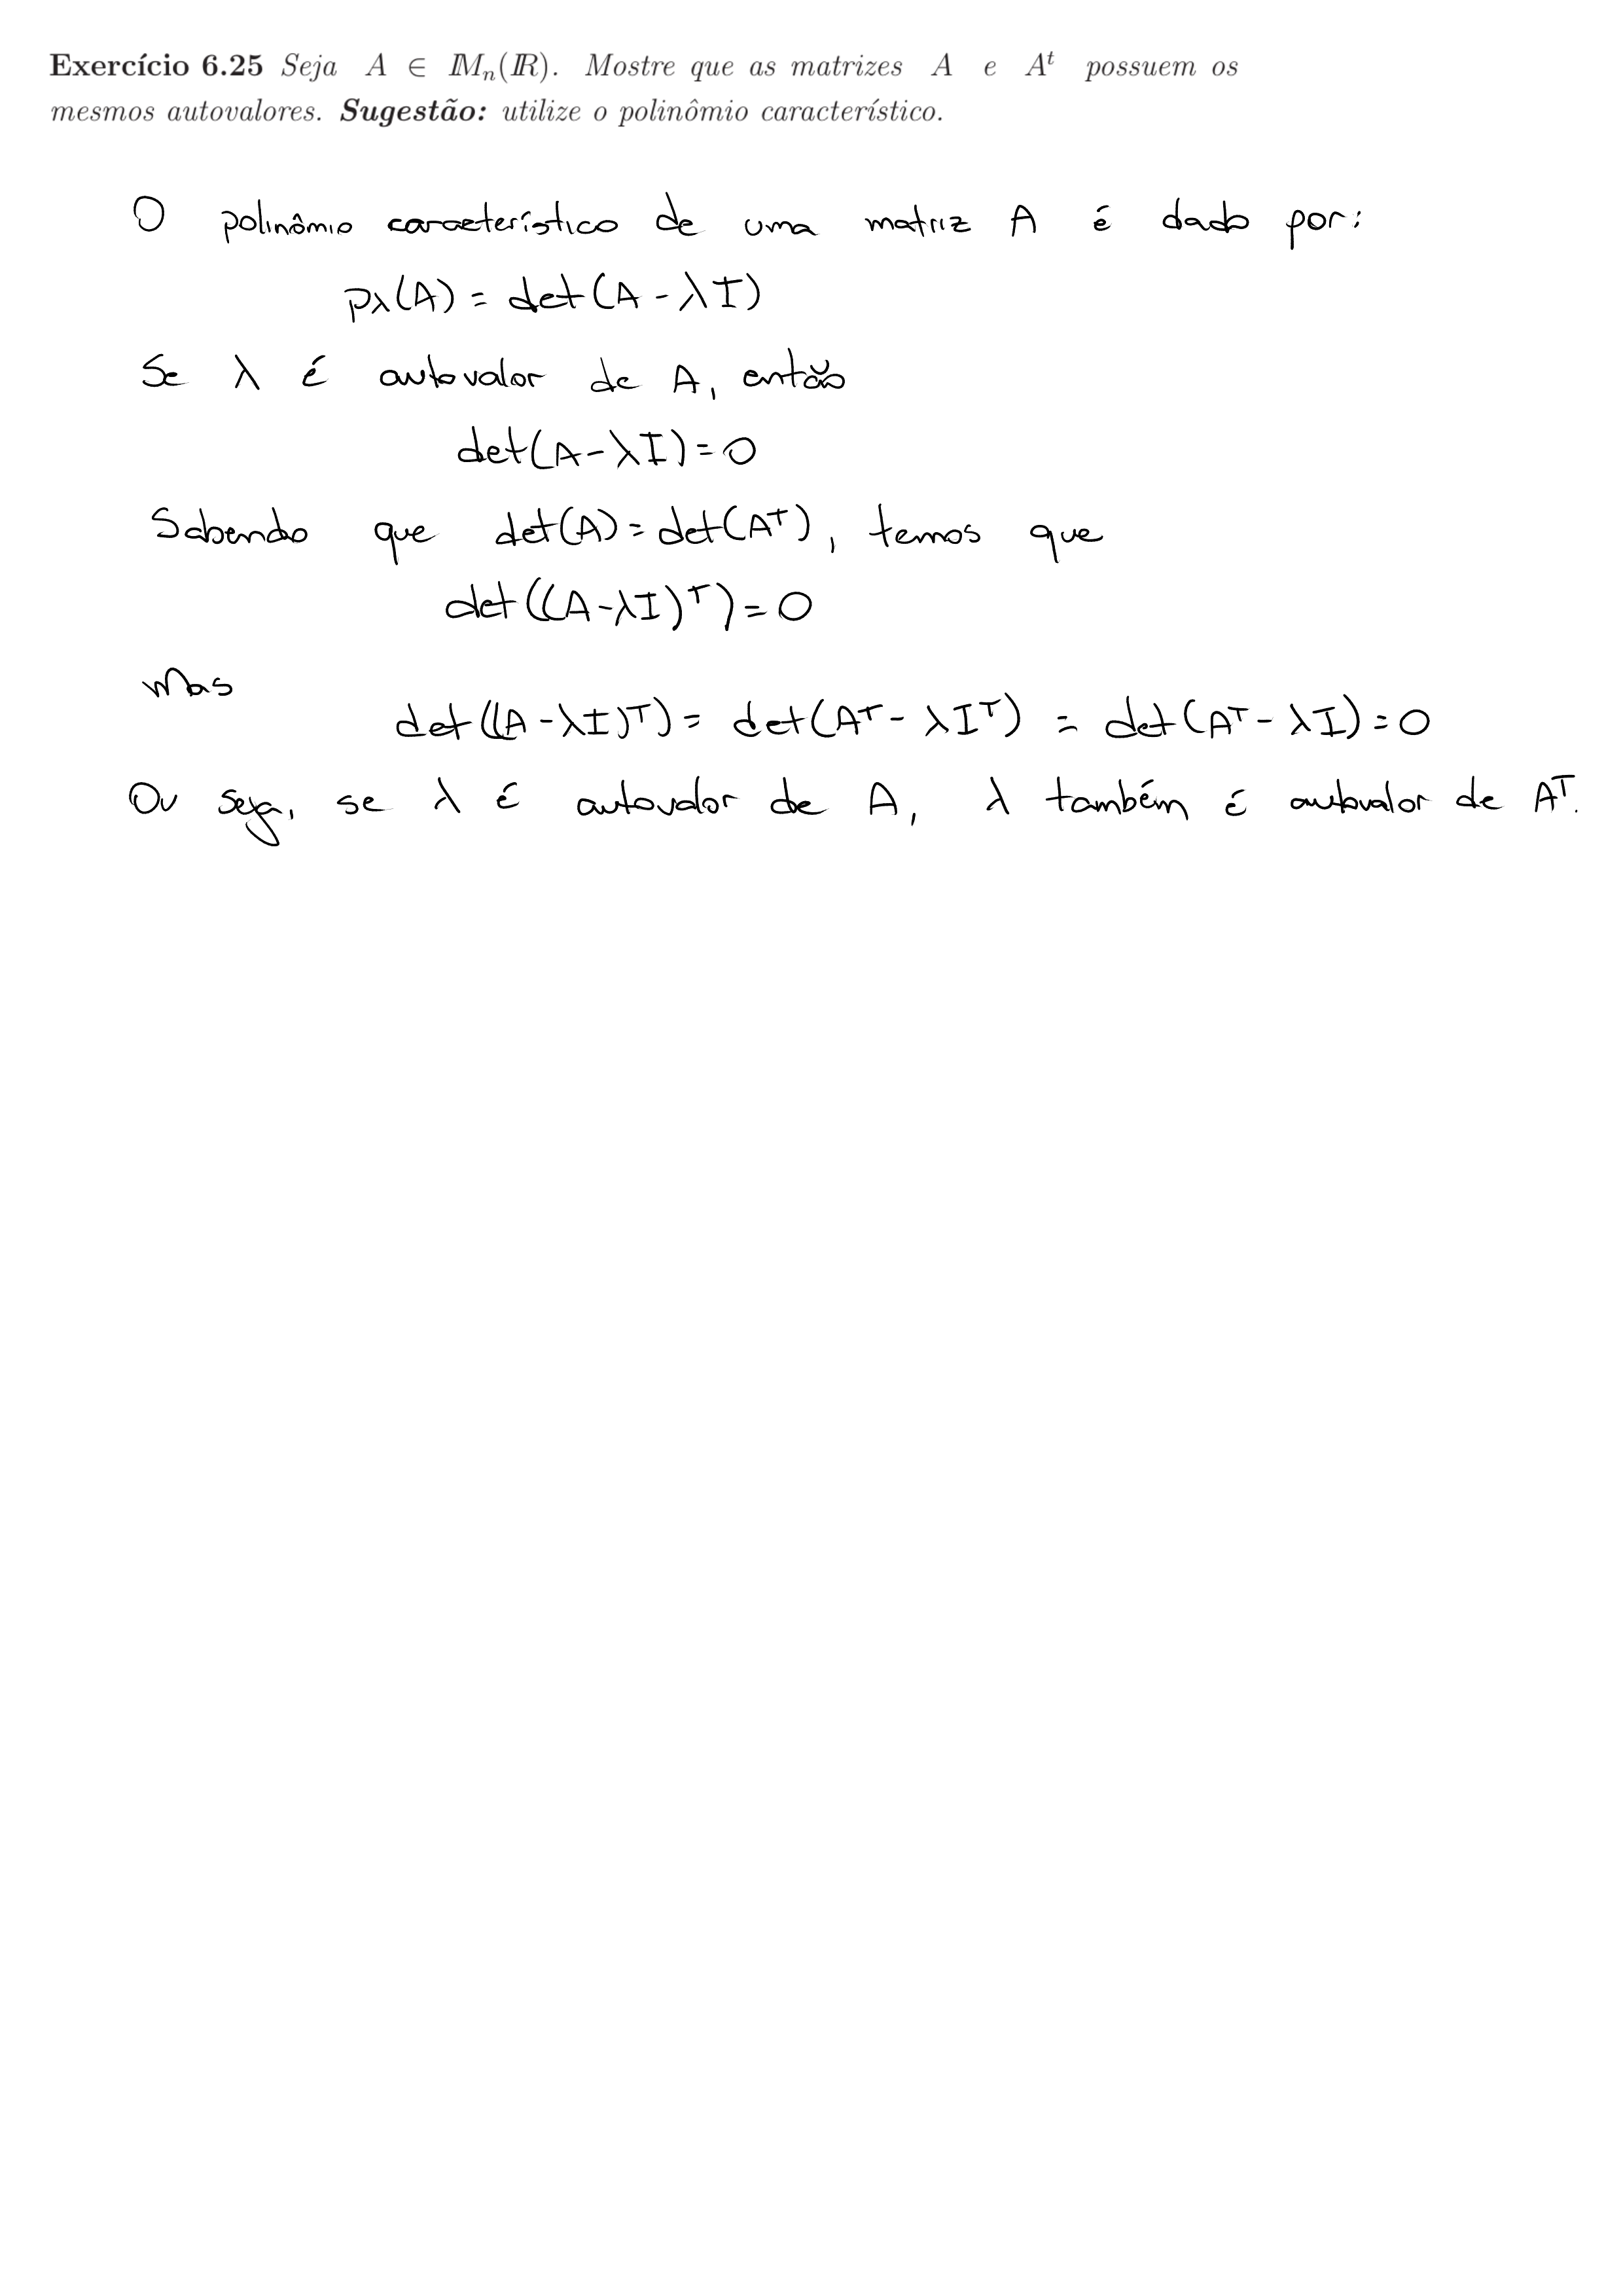 Exercício 6.25 Seja A ∈ IMₙ(IR). Mostre que as matrizes A e Aᵗ possuem os
mesmos autovalores. Sugestão: utilize o polinômio característico.
O polinômio característico de uma matriz A é dado por:
pλ(A) = det(A - λI)
Se λ é autovalor de A, então
det(A-λI)=0
Sabendo que det(A)=det(Aᵀ), temos que
det((A-λI)ᵀ)=0
Mas
det((A-λI)ᵀ) = det(Aᵀ - λIᵀ) = det(Aᵀ - λI)=0
Ou seja, se λ é autovalor de A, λ também é autovalor de Aᵀ.